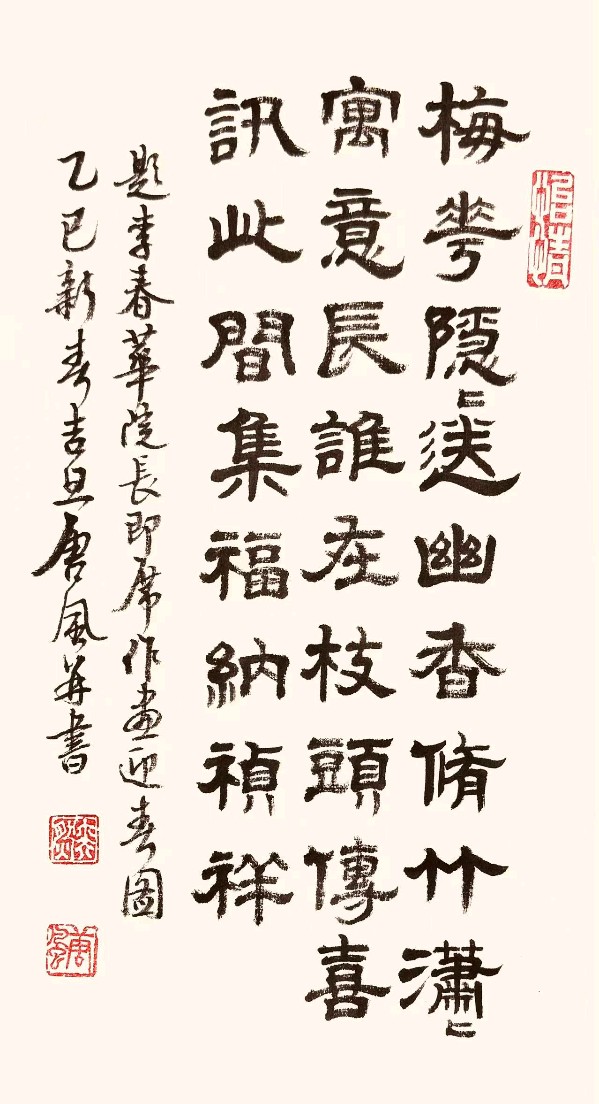 梅花隱〻送幽香脩竹瀟〻
寓意長誰在枝頭傳喜
訊此間集福納禎祥
題李春華院長即席作畫迎春图
乙巳新春吉旦唐風并書